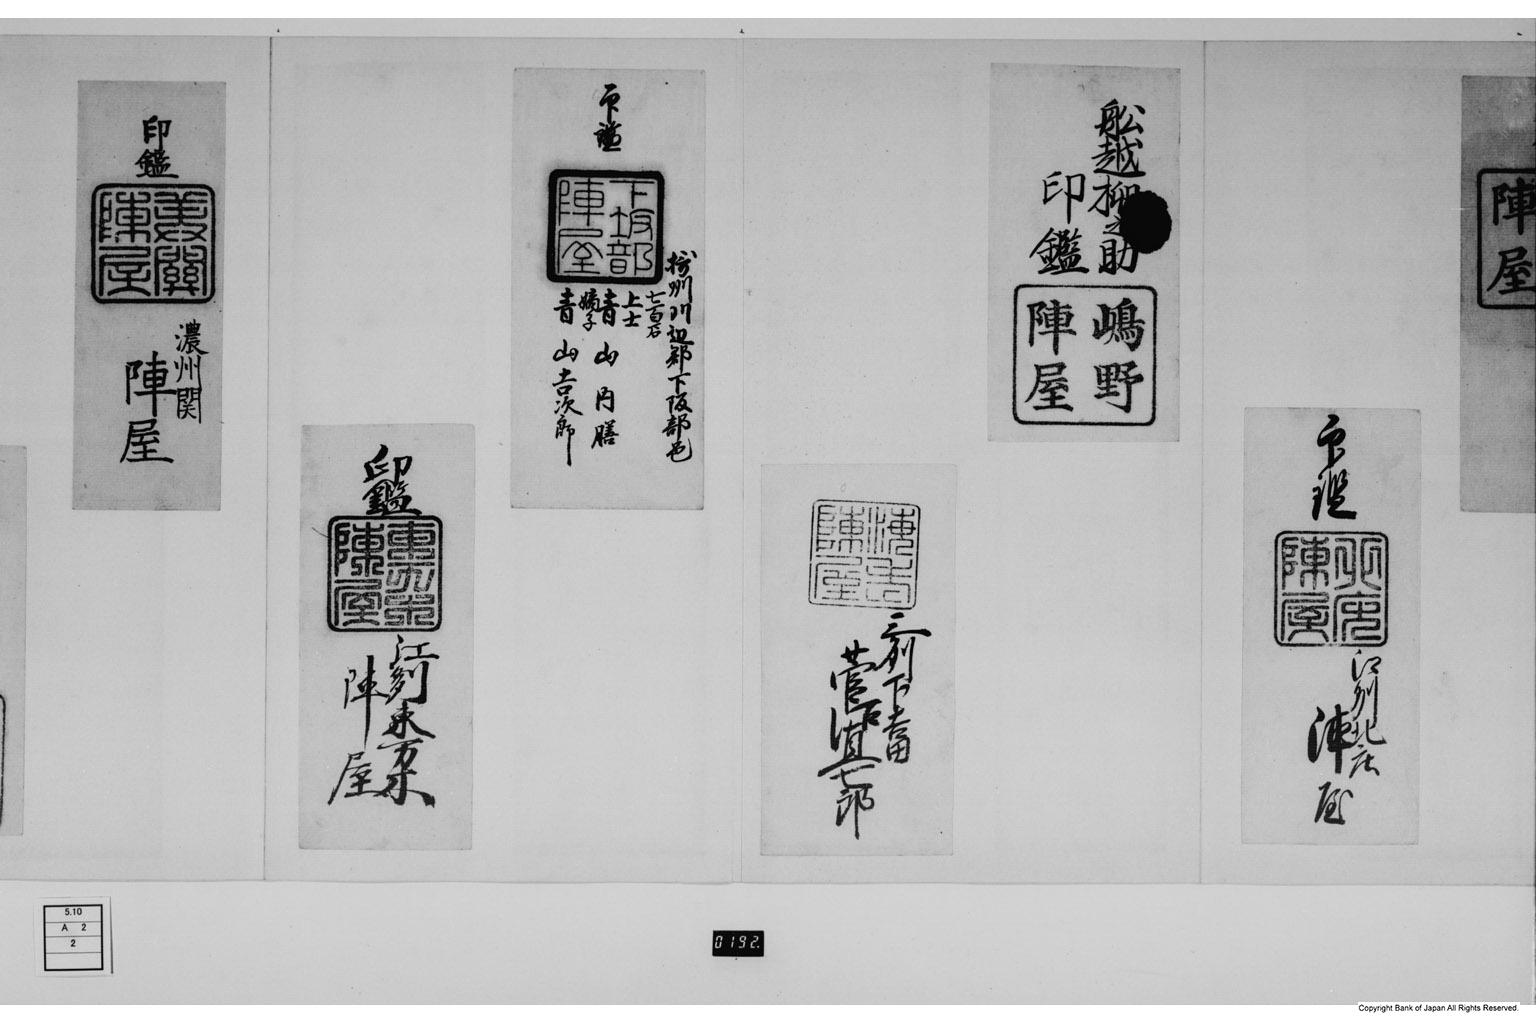 陣
屋
船越柳之助
印鑑
嶋野
陣屋
印鑑
陣屋
江州北庄
陣屋
海老
陣屋
三州下吉田
菅沼
七郎
印鑑
下坂部
陣屋
摂州川辺郡下阪部邑
七百石
上士
青山内膳
嫡子
青山吉次郎
印鑑
東万木
陣屋
江州東万木
陣屋
印鑑
美関
陣屋
濃州関
陣屋
5.10
A 2
2
0192.
Copyright Bank of Japan All Rights Reserved.